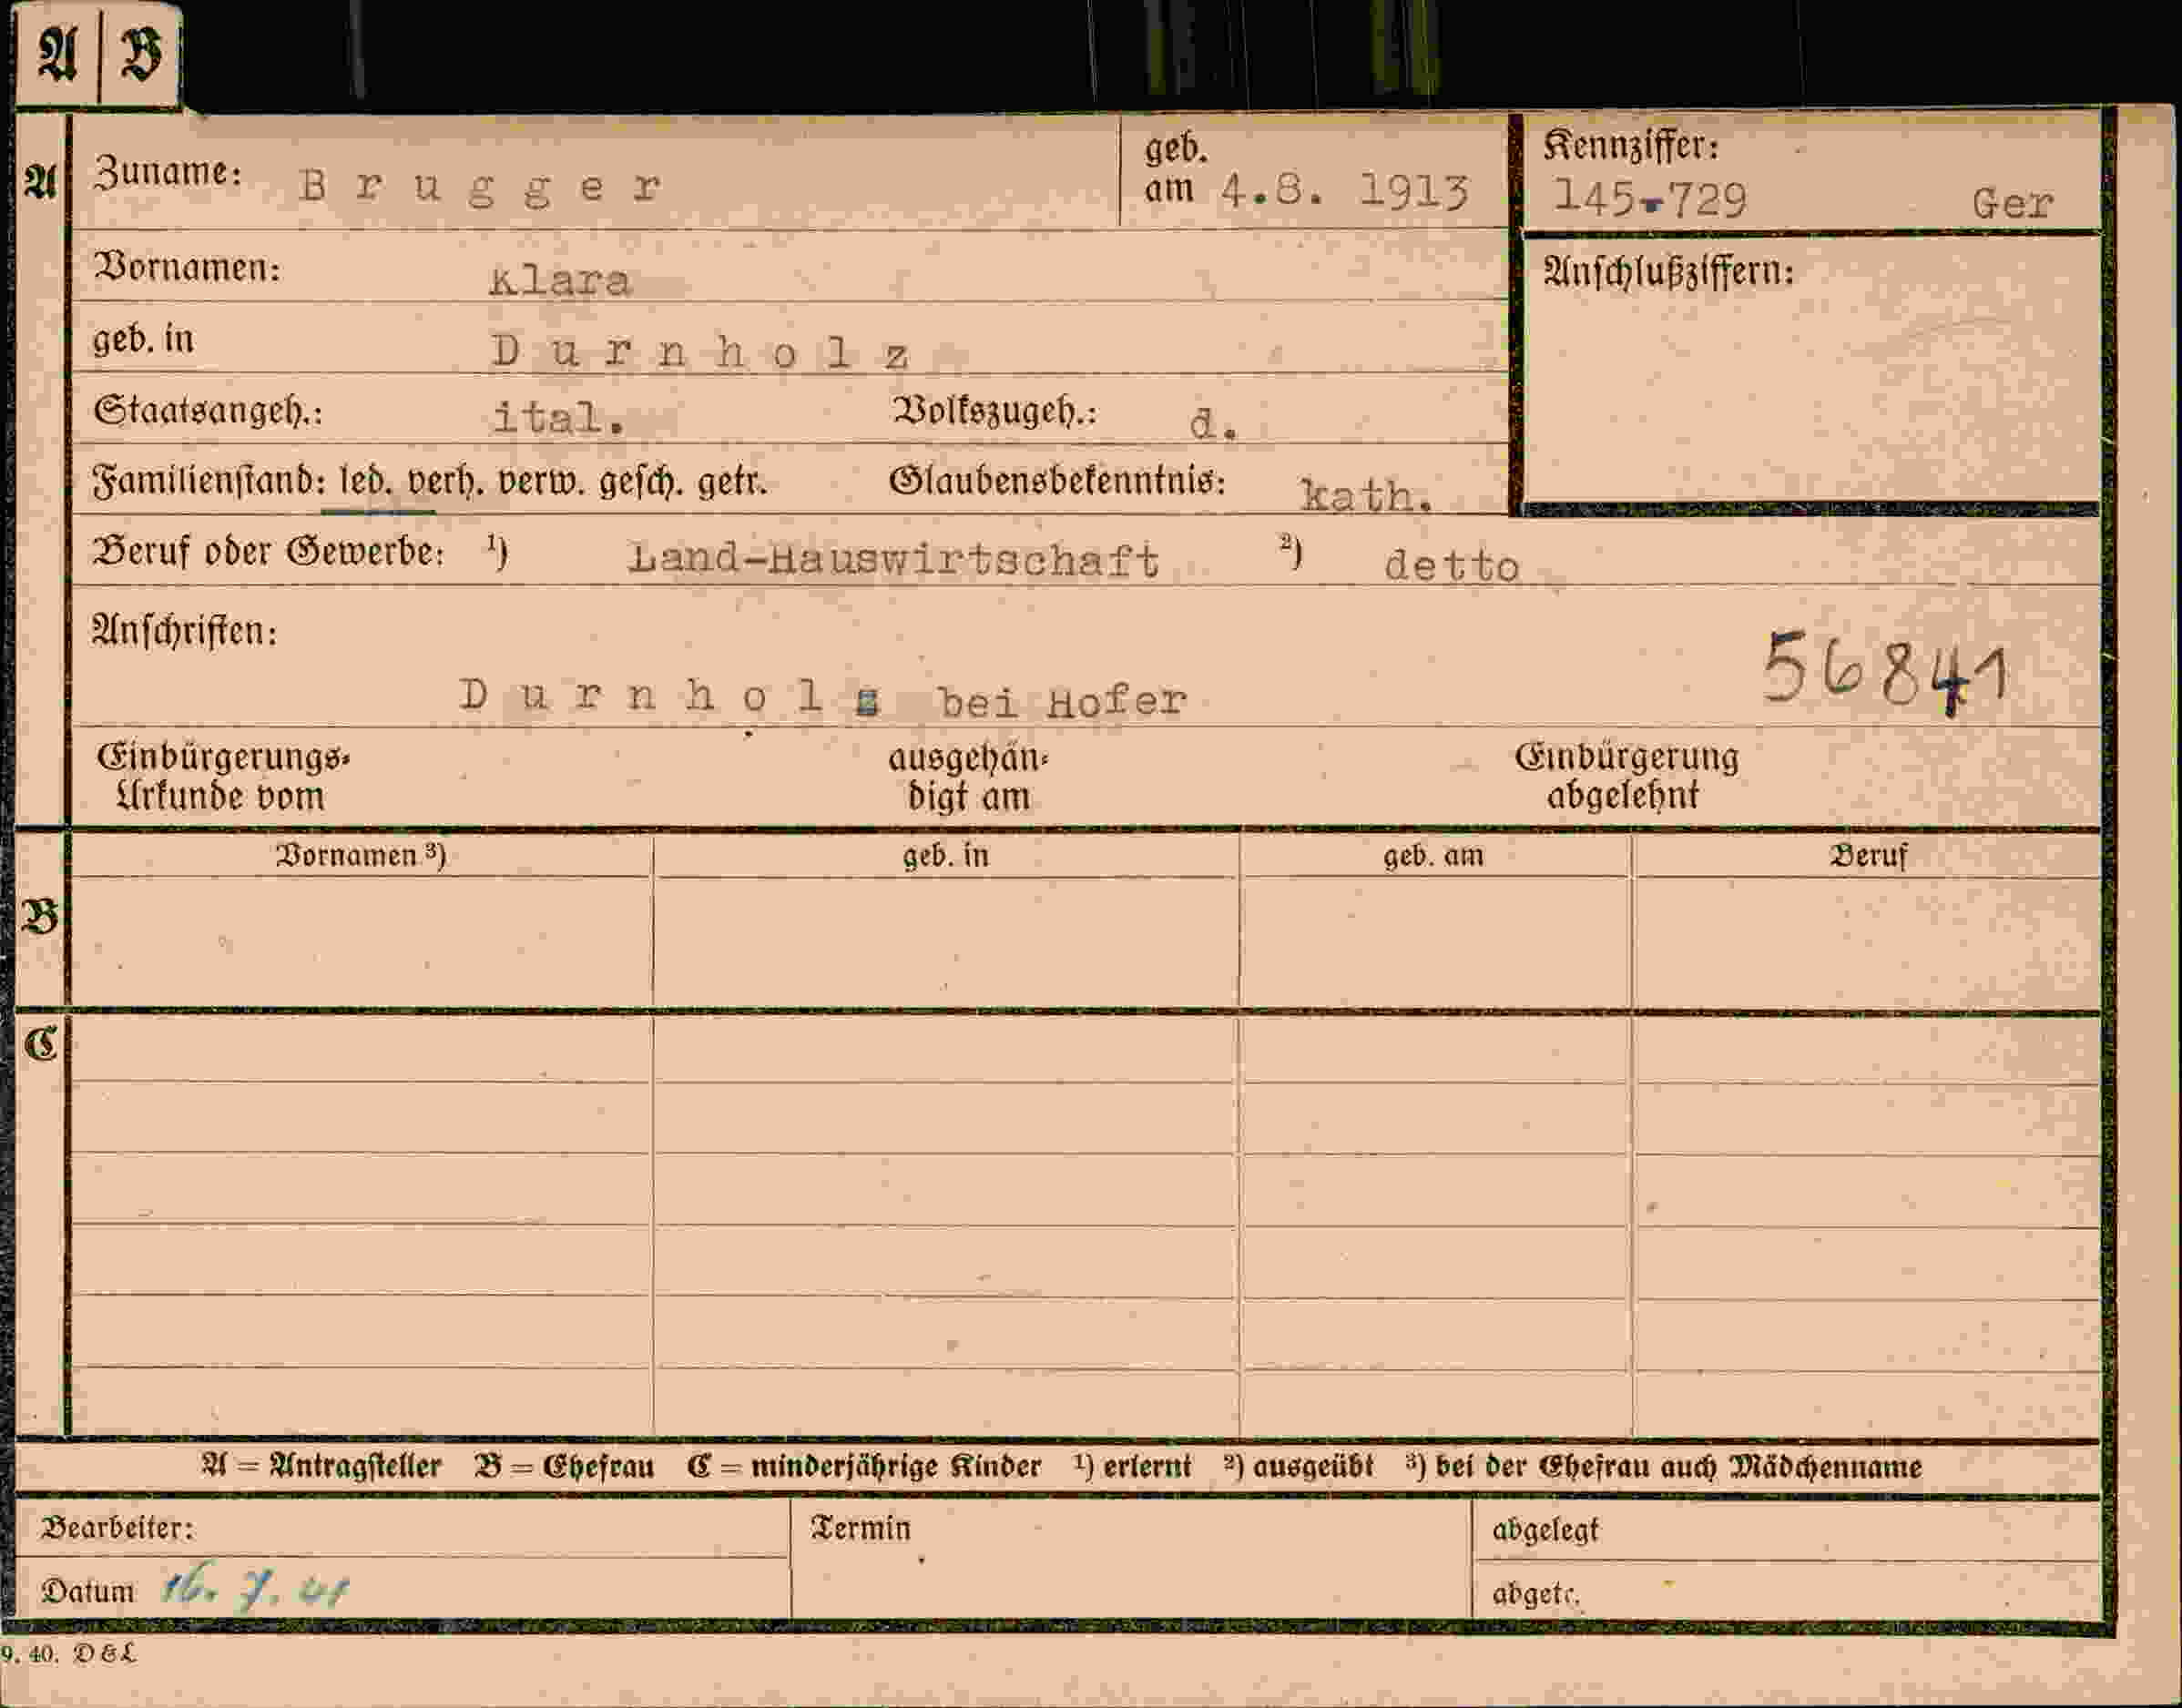 A | B
A
Zuname: Brugger
geb. am 4.8. 1913
Kennziffer:
145-729 Ger
Vornamen: Klara
Anschlußziffern:
geb. in Durnholz
Staatsangeh.: ital. Volkszugeh.: d.
Familienstand: led. verh. verw. gesch. getr. Glaubensbekenntnis: kath.
Beruf oder Gewerbe: ¹) Land-Hauswirtschaft ²) detto
Anschriften:
56841
Durnholz bei Hofer
Einbürgerungs- ausgehän- Einbürgerung
Urkunde vom digt am abgelehnt
Vornamen ³) geb. in geb. am Beruf
B
C
A = Antragsteller B = Ehefrau C = minderjährige Kinder ¹) erlernt ²) ausgeübt ³) bei der Ehefrau auch Mädchenname
Bearbeiter: Termin abgelegt
Datum 16. 7. 41 abgetr.
9. 40. D&L